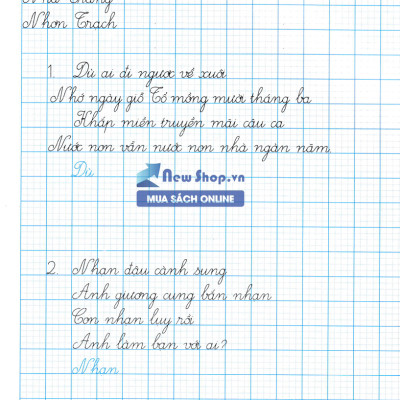 Nhơn Trạch
1. Dù ai đi ngược về xuôi
Nhớ ngày giỗ Tổ mồng mười tháng ba
Khắp miền truyền mãi câu ca
Nước non vẫn nước non nhà ngàn năm.
Dù
New Shop.vn
MUA SÁCH ONLINE
2. Nhạn đậu cành sung
Anh giương cung bắn nhạn
Con nhạn luỵ rồi
Anh làm bạn với ai?
Nhạn